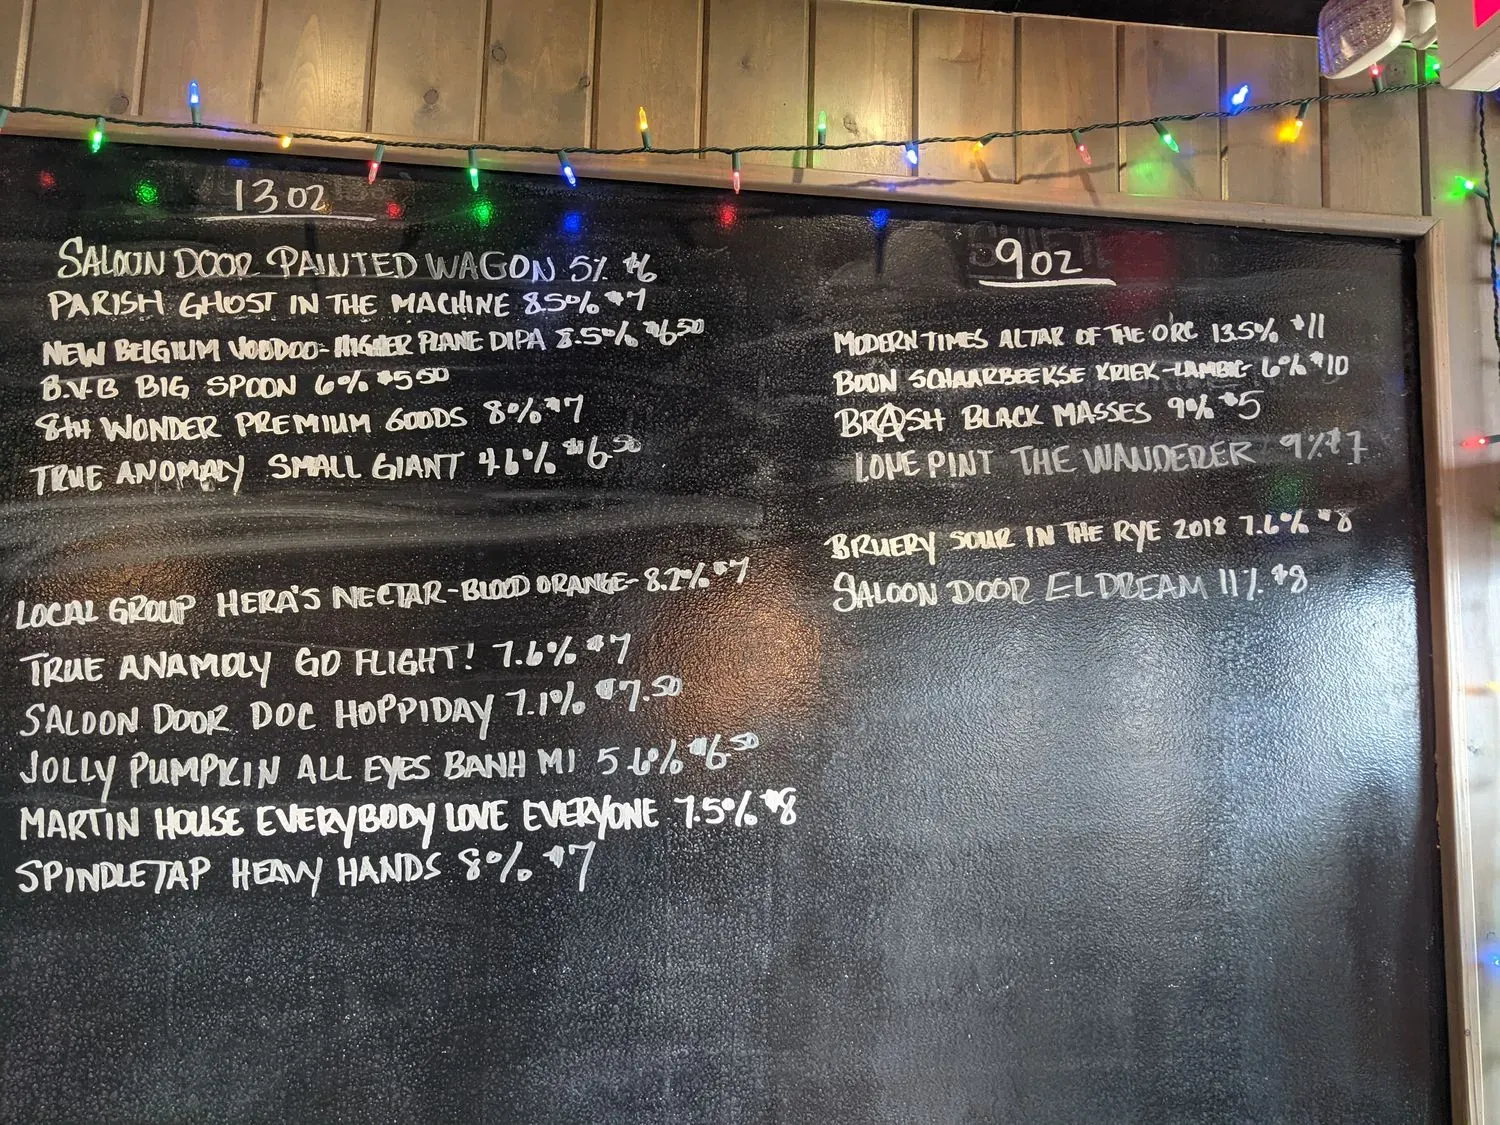 13oz
SALOON DOOR PAINTED WAGON 5% $6
PARISH GHOST IN THE MACHINE 8.5% $7
NEW BELGIUM VOODOO-HIGHER PLANE DIPA 8.5% $6.50
B.V.B BIG SPOON 6% $5.50
8TH WONDER PREMIUM GOODS 8% $7
TRUE ANOMALY SMALL GIANT 4.6% $6.50
LOCAL GROUP HERA'S NECTAR-BLOOD ORANGE- 8.2% $7
TRUE ANAMOLY GO FLIGHT! 7.6% $7
SALOON DOOR DOC HOPPIDAY 7.1% $7.50
JOLLY PUMPKIN ALL EYES BANH MI 5.6% $6.50
MARTIN HOUSE EVERYBODY LOVE EVERYONE 7.5% $8
SPINDLETAP HEAVY HANDS 8% $7
9oz
MODERN TIMES ALTAR OF THE ORC 13.5% $11
BOON SCHAARBEEKSE KRIEK-LAMBIC 6% $10
BRASH BLACK MASSES 9% $5
LONE PINT THE WANDERER 9% $7
BRUERY SOUR IN THE RYE 2018 7.6% $8
SALOON DOOR EL DREAM 11% $8